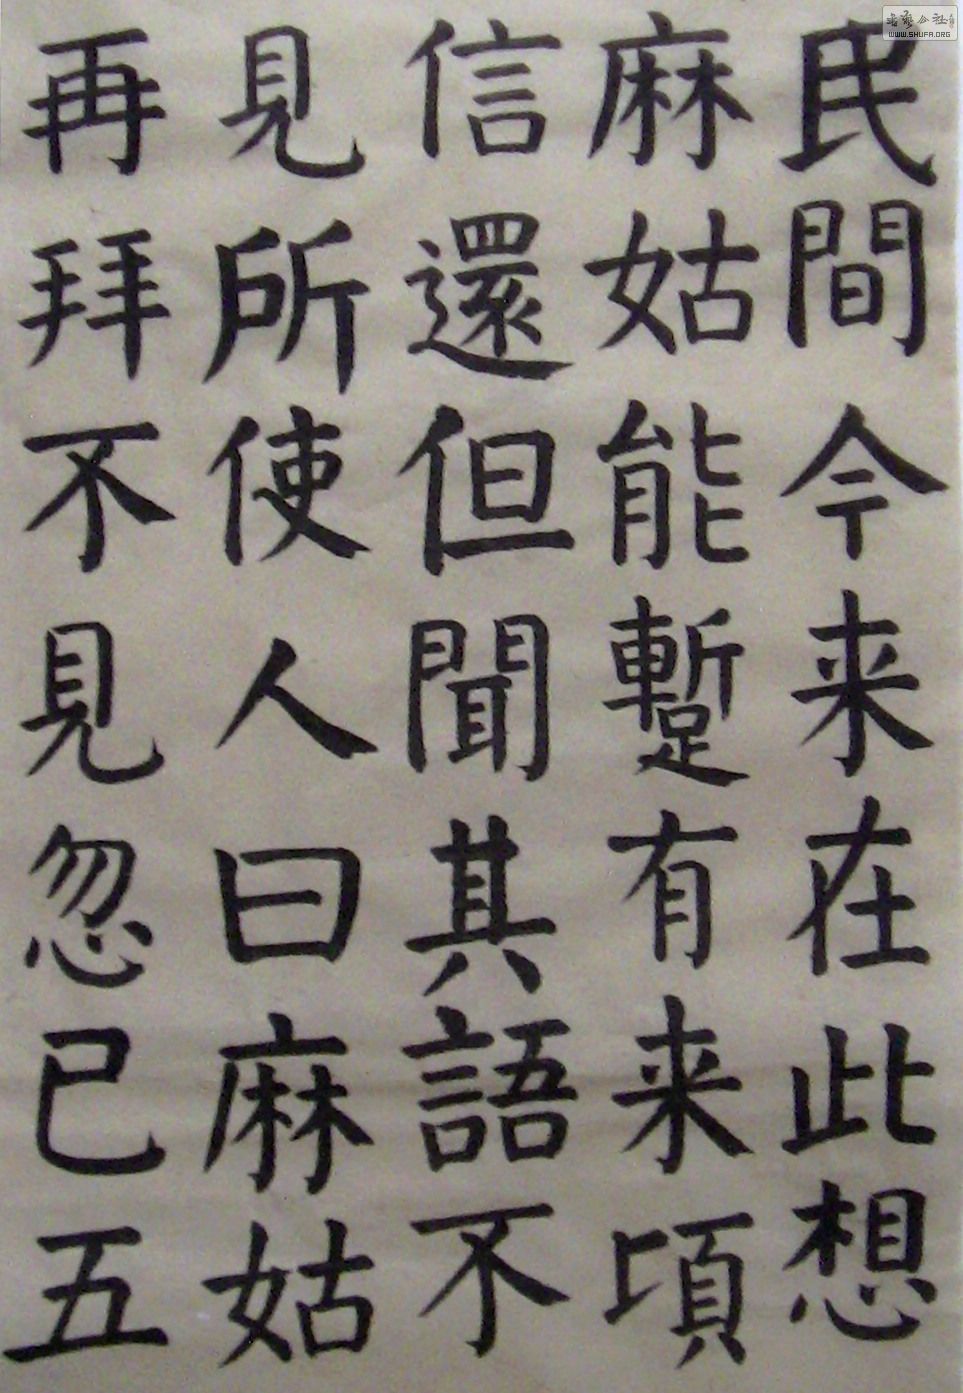 民間今来在此想
麻姑能蹔有来頃
信還但聞其語不
見所使人曰麻姑
再拜不見忽已五
WWW.SHUFA.ORG